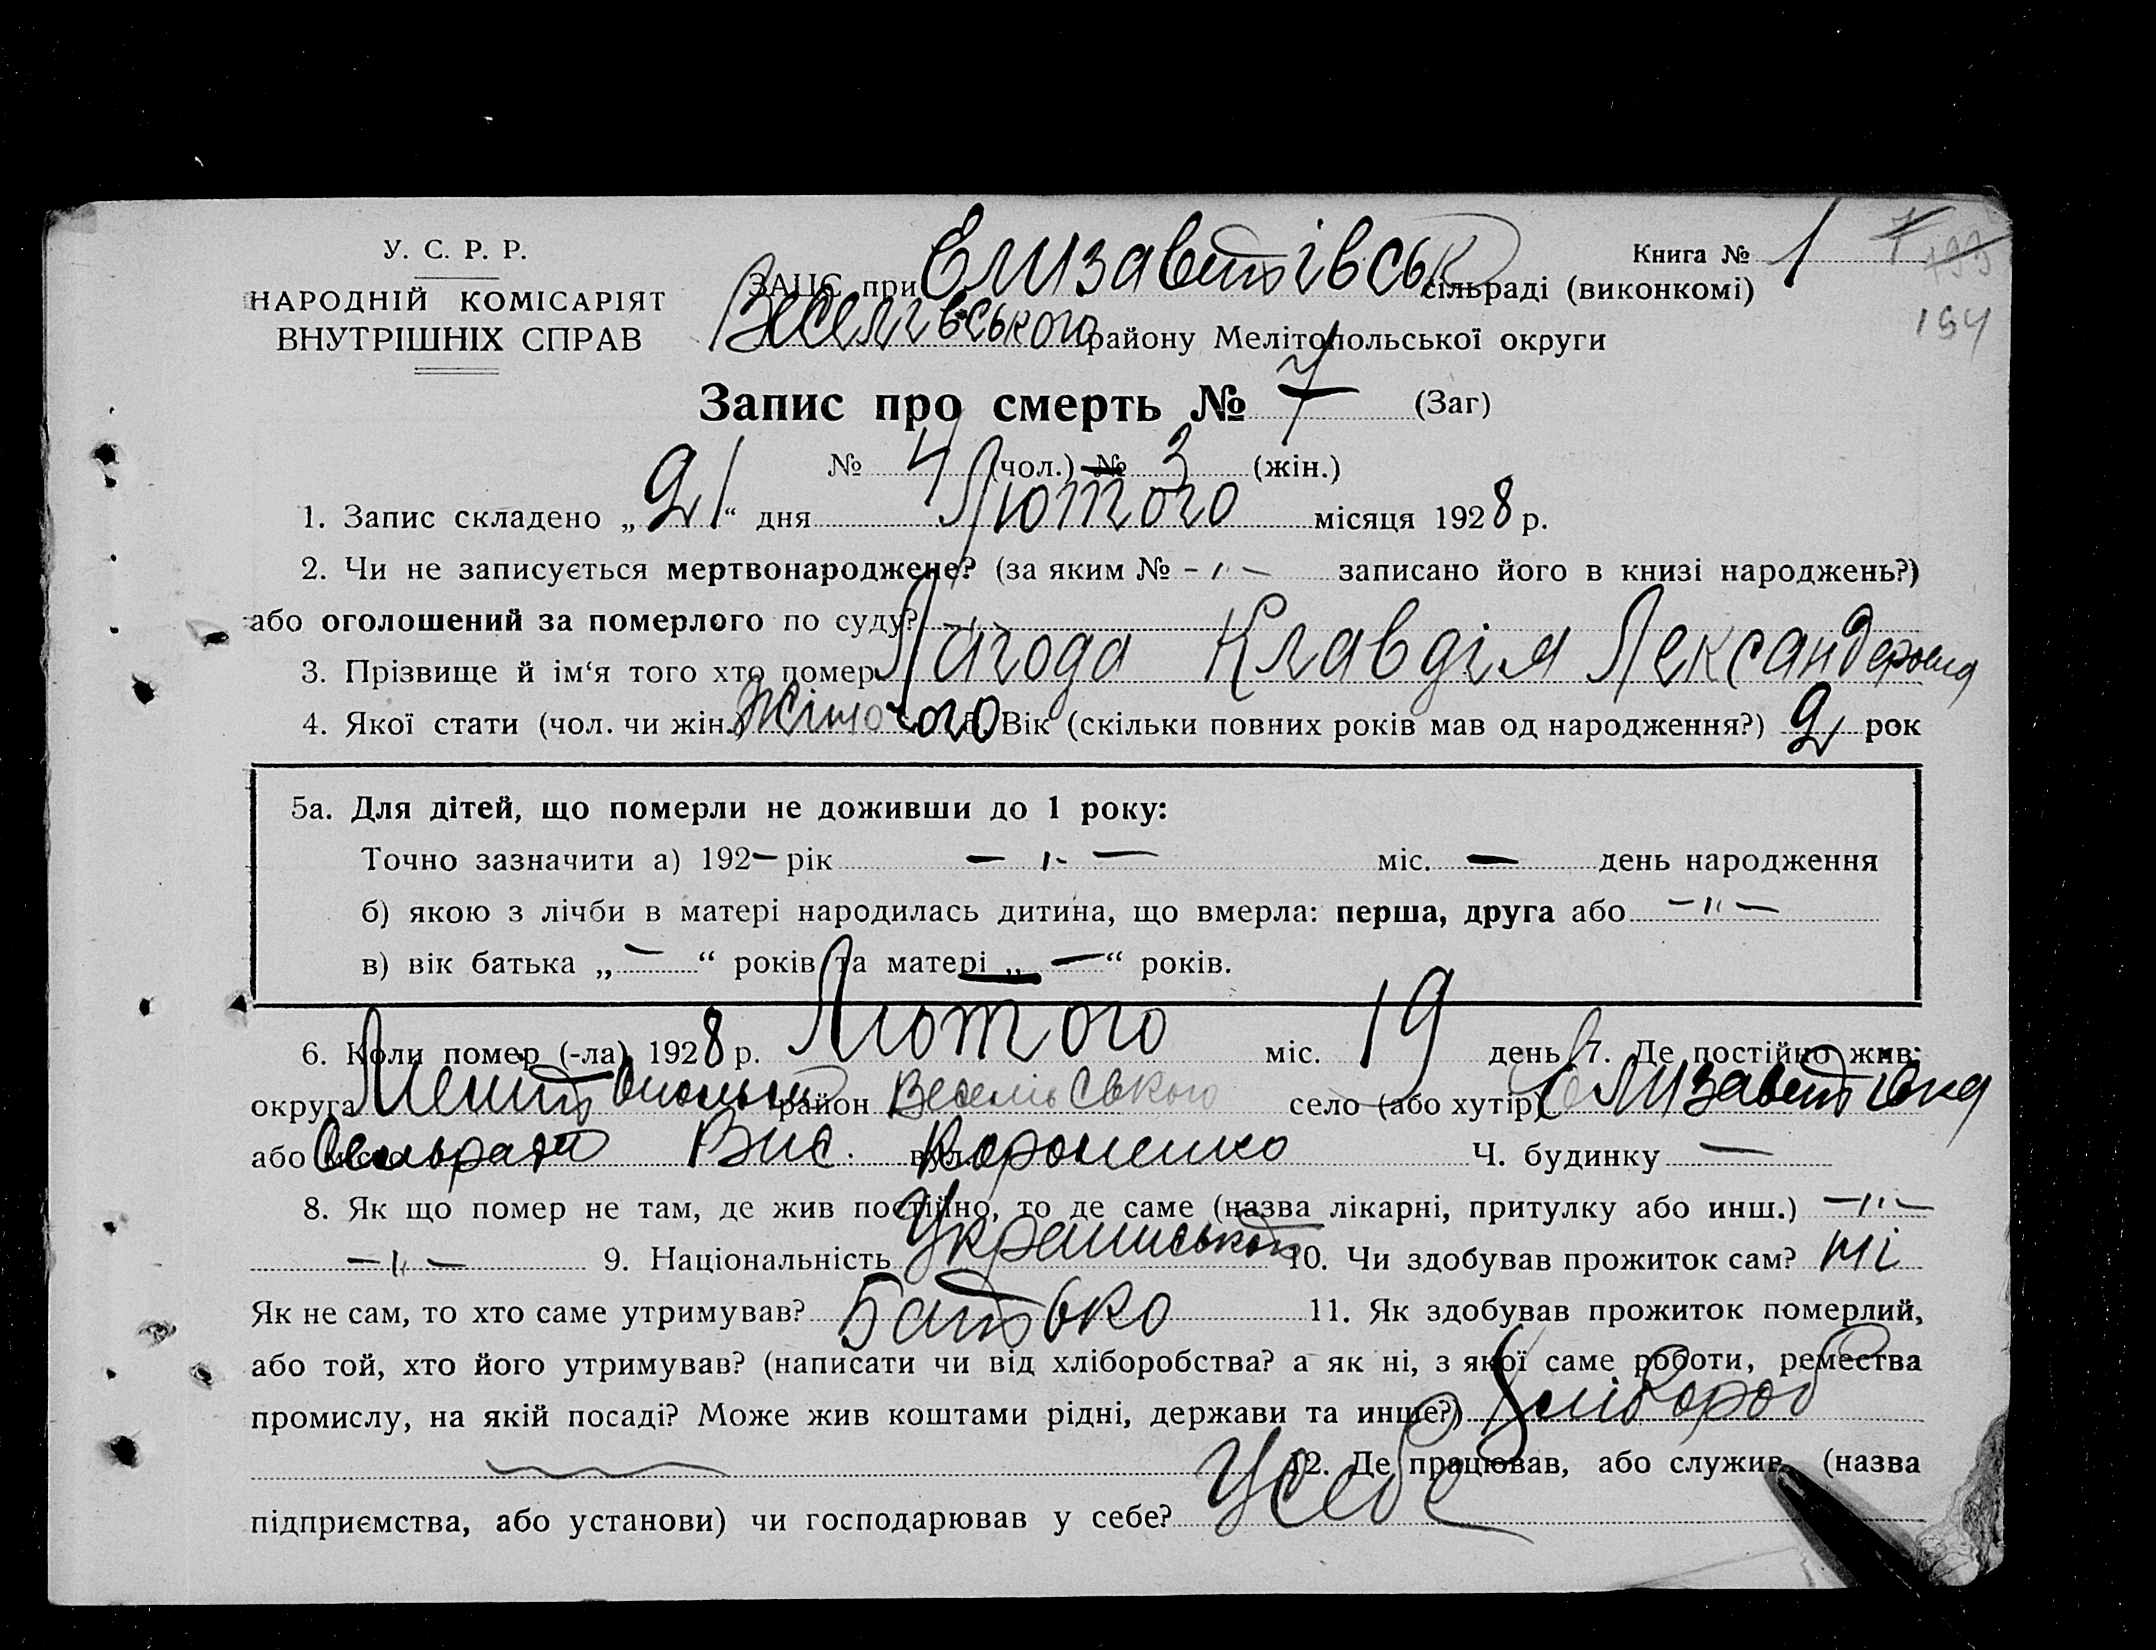 У. С. Р. Р.
НАРОДНІЙ КОМІСАРІЯТ
ВНУТРІШНІХ СПРАВ
ЗАЦС при Елизаветівськ сільраді (виконкомі)
Книга № 1
7
193
194
Веселівського району Мелітопольської округи
Запис про смерть № 7 (Заг)
№ 4 (чол.) № 3 (жін.)
1. Запис складено „21“ дня Лютого місяця 1928 р.
2. Чи не записується мертвонароджене? (за яким № -"- записано його в книзі народжень?)
або оголошений за померлого по суду?
3. Прізвище й ім‘я того хто помер Лагода Клавдія Лександеровна
4. Якої стати (чол. чи жін.) Жіночого 5. Вік (скільки повних років мав од народження?) 2 рок
5а. Для дітей, що померли не доживши до 1 року:
Точно зазначити а) 192- рік - " - міс. - день народження
б) якою з лічби в матері народилась дитина, що вмерла: перша, друга або -"-
в) вік батька „-“ років та матері „-“ років.
6. Коли помер (-ла) 1928 р. Лютого міс. 19 день 7. Де постійно жив:
округа район Веселівського село (або хутір) Елизаветівка
або місто Сельрати Вис. вул. Короненко Ч. будинку -
8. Як що помер не там, де жив постійно, то де саме (назва лікарні, притулку або инш.) -"-
-"- 9. Національність 10. Чи здобував прожиток сам? ні
Як не сам, то хто саме утримував? Батько 11. Як здобував прожиток померлий,
або той, хто його утримував? (написати чи від хліборобства? а як ні, з якої саме роботи, ремества
промислу, на якій посаді? Може жив коштами рідні, держави та инше?) Хлібороб
12. Де працював, або служив (назва
підприємства, або установи) чи господарював у себе? У себе